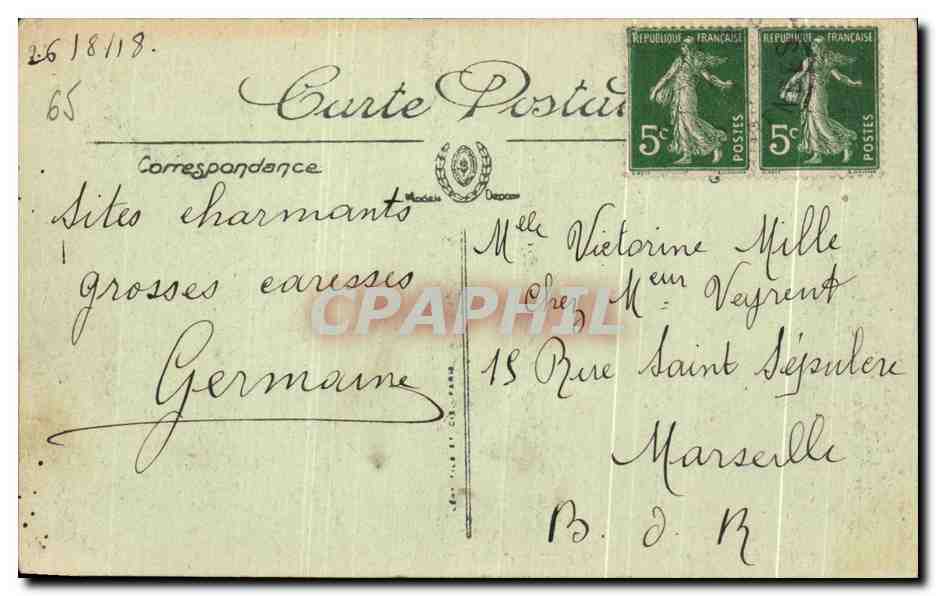 26/8/18.
65
Carte Postale
RÉPUBLIQUE FRANÇAISE
5c
POSTES
RÉPUBLIQUE FRANÇAISE
5c
POSTES
Correspondance
Modèle Déposé
Sites charmants
grosses caresses
Germaine
Melle Victorine Mille
Chez Meur Veyrent
15 Rue Saint Sépulcre
Marseille
B. d. R
LÉVY FILS ET CIE. PARIS
CPAPHIL